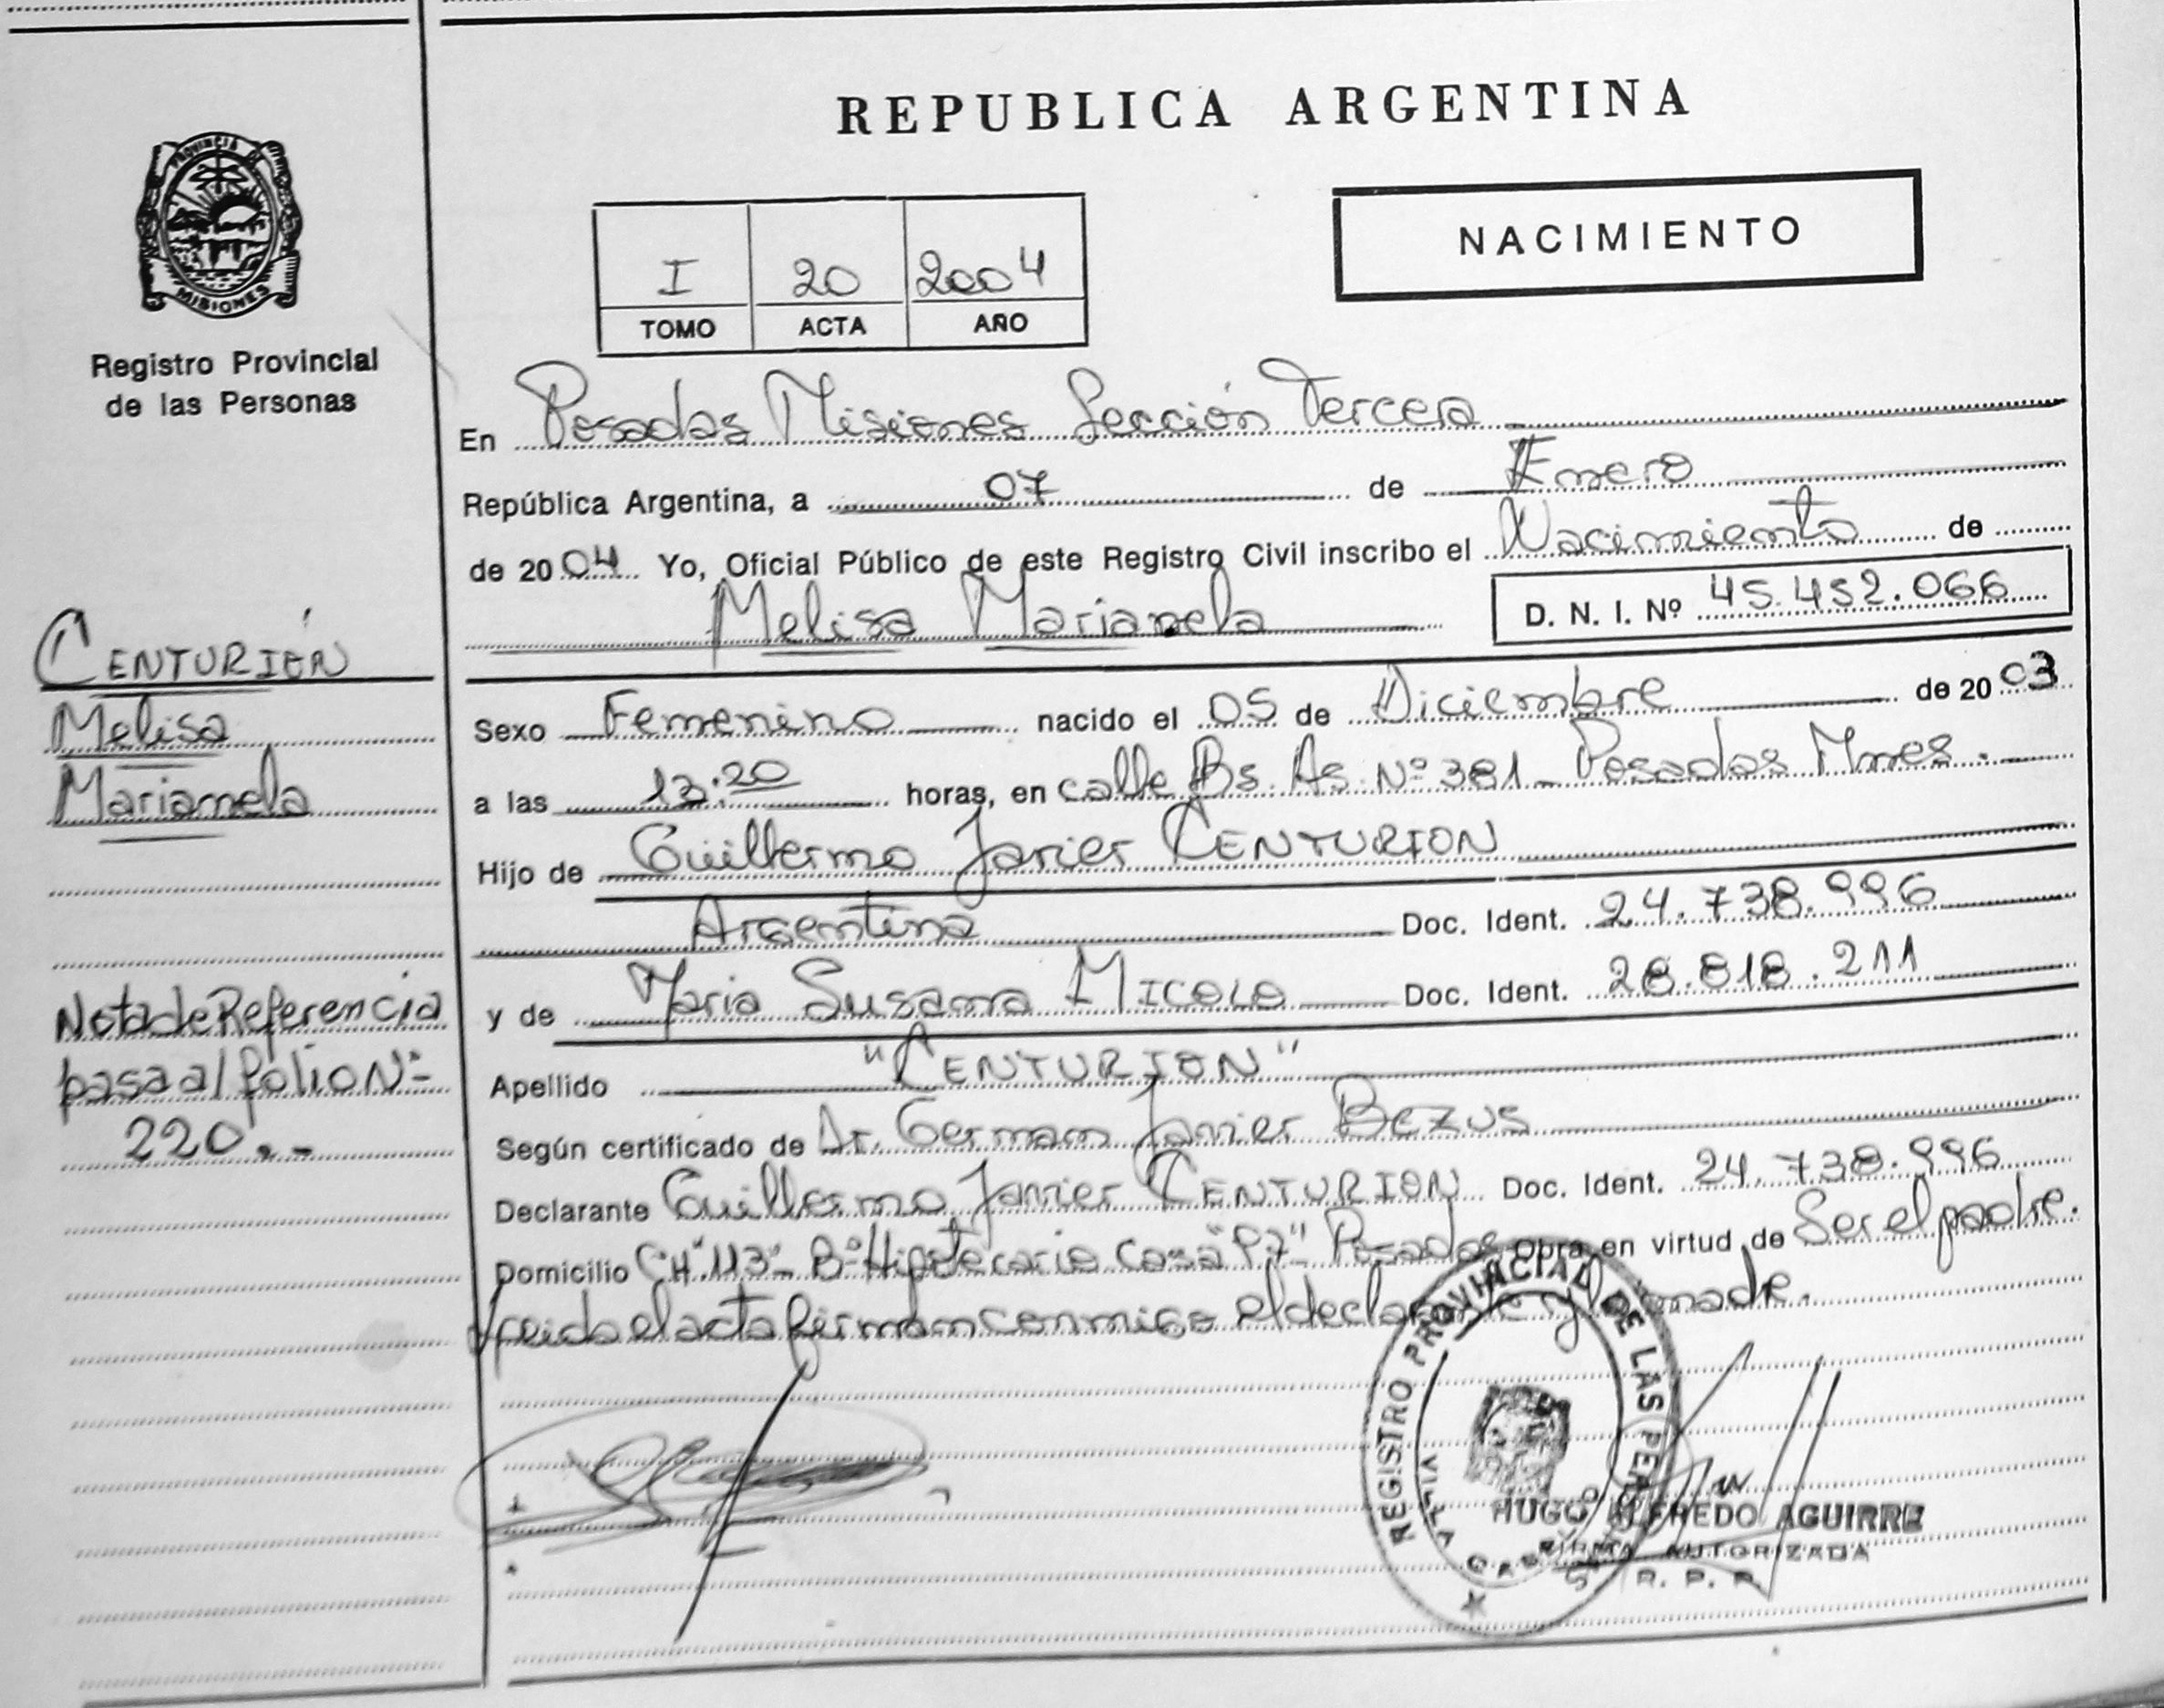 REPUBLICA ARGENTINA
PROVINCIA DE
MISIONES
Registro Provincial
de las Personas
NACIMIENTO
I 20 2004
TOMO ACTA AÑO
En Posadas Misiones Sección Tercera
República Argentina, a 07 de Enero
de 2004 Yo, Oficial Público de este Registro Civil inscribo el Nacimiento de
Melisa Marianela D. N. I. Nº 45.452.066
CENTURIÓN
Melisa
Marianela
Sexo Femenino nacido el 05 de Diciembre de 2003
a las 13:20 horas, en calle Bs. As. Nº 381 - Posadas Mnes.
Hijo de Guillermo Javier CENTURION
Argentina Doc. Ident. 24.738.996
y de Maria Susana MICOLO Doc. Ident. 28.818.211
Apellido "CENTURION"
Según certificado de Dr. German Javier BEZUS
Declarante Guillermo Javier CENTURION Doc. Ident. 24.738.996
Domicilio CH 113 - Bº Hipotecario Casa "P7" Posadas Obra en virtud de Ser el padre.
Leida el acta firman conmigo el declarante y la madre.
Nota de Referencia
pasa al folio Nº
220.-
REGISTRO PROVINCIAL DE LAS PERSONAS
HUGO ALFREDO AGUIRRE
FIRMA AUTORIZADA
R. P. P.